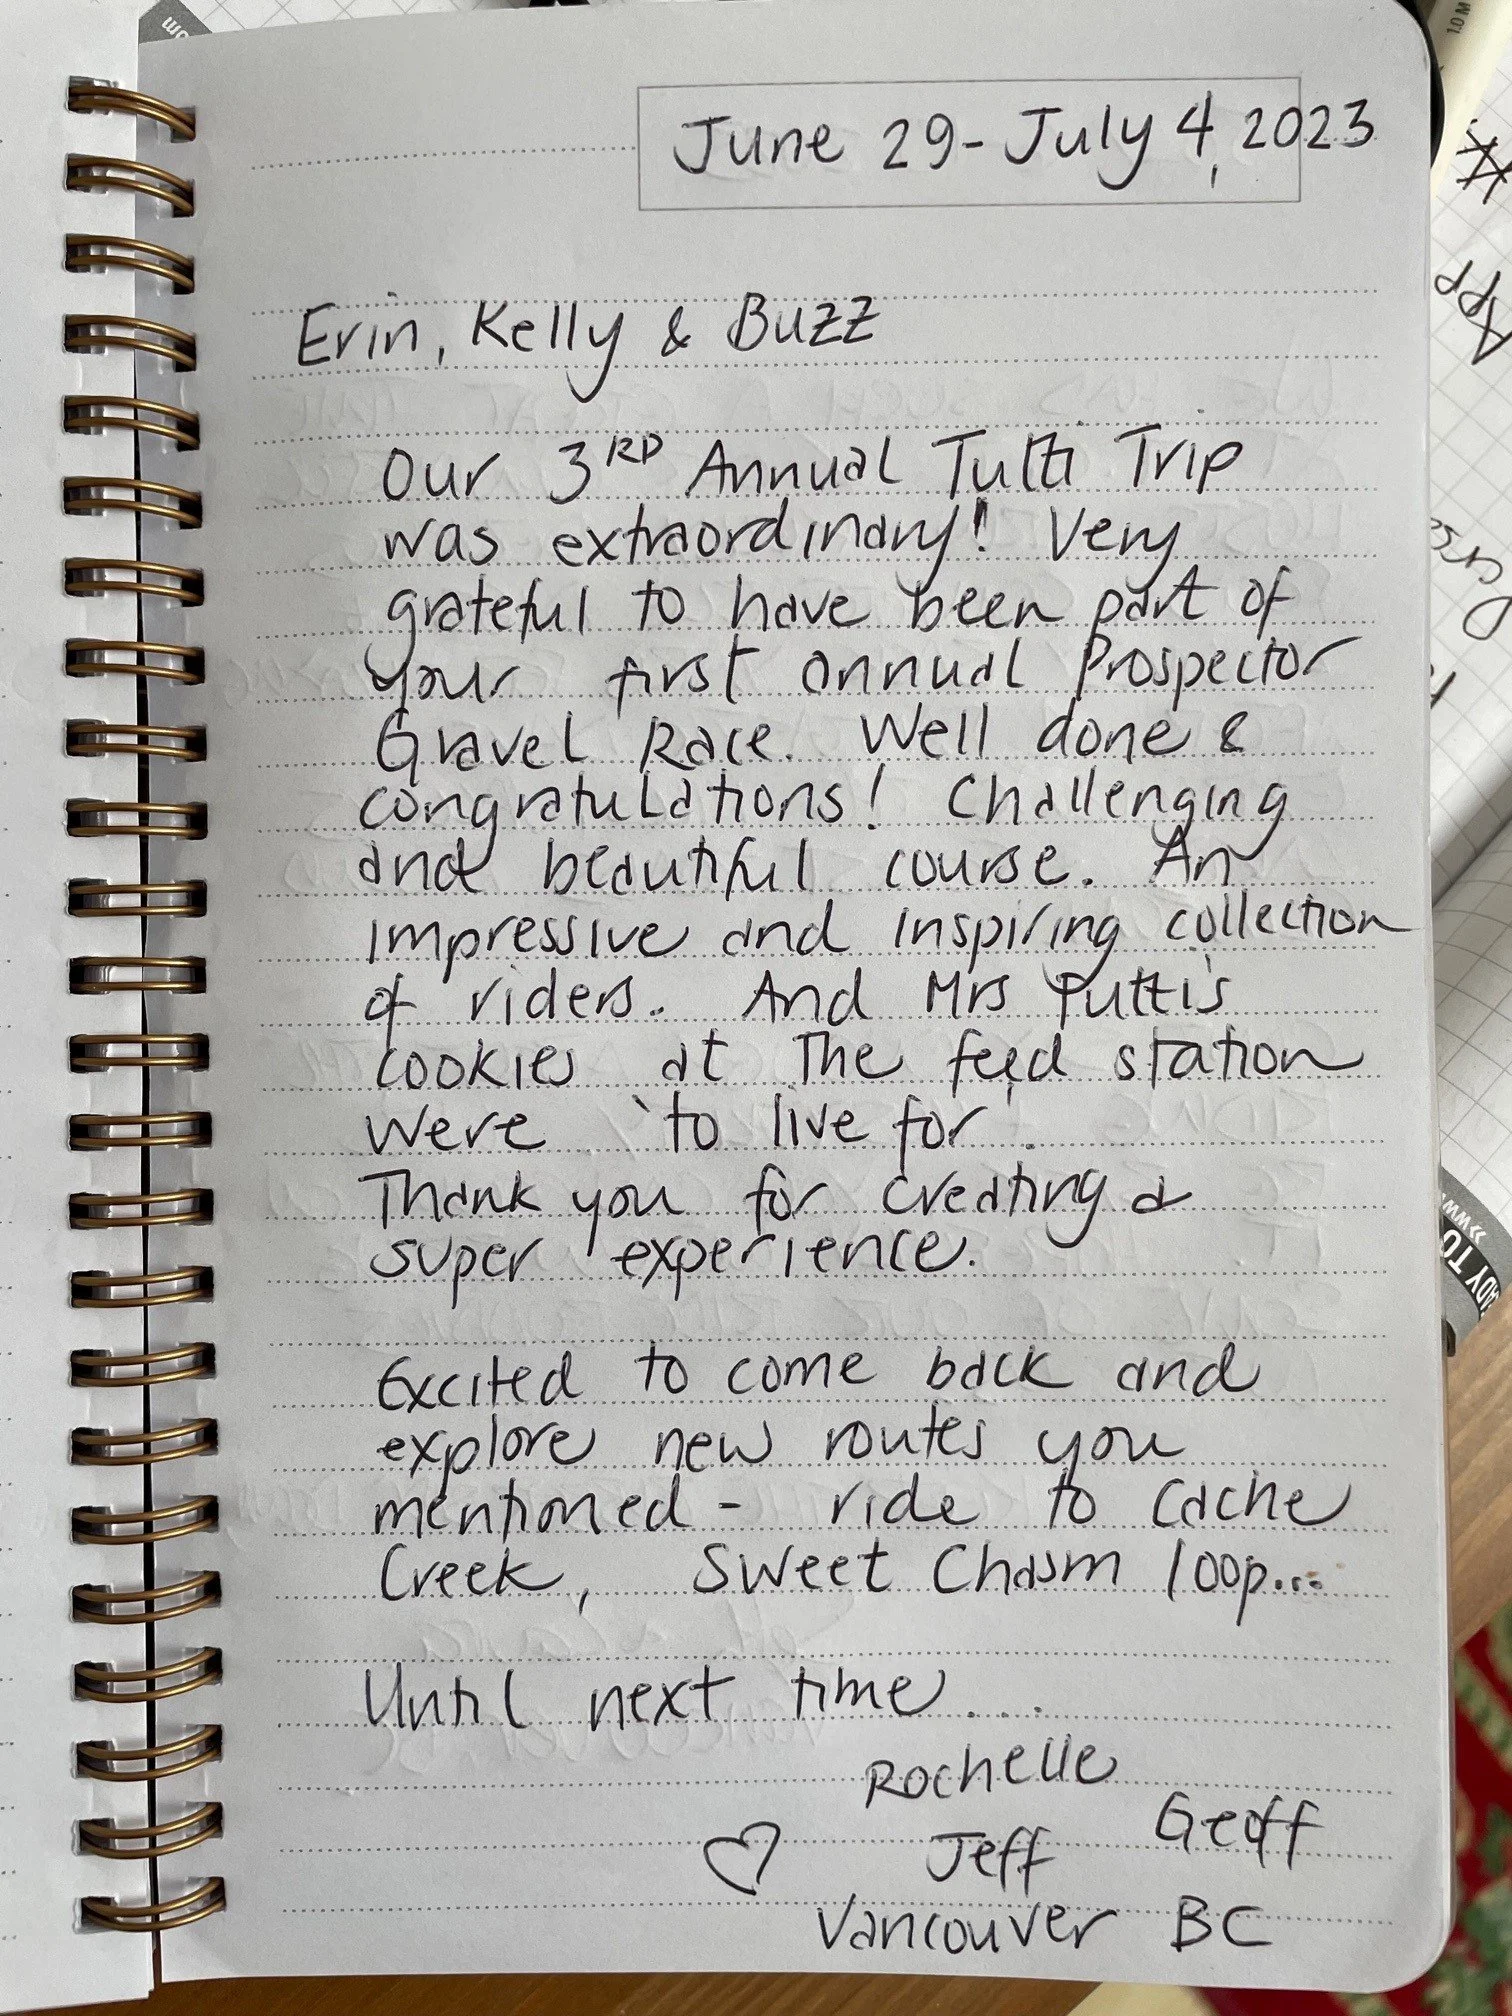 June 29-July 4, 2023
Erin, Kelly & Buzz
Our 3RD Annual Tutti Trip
was extraordinary! Very
grateful to have been part of
your first annual Prospector
Gravel Race. Well done &
congratulations! Challenging
and beautiful course. An
impressive and inspiring collection
of riders. And Mrs Tutti's
cookies at the feed station
were 'to live for'.
Thank you for creating a
super experience.
Excited to come back and
explore new routes you
mentioned - ride to Cache
Creek, Sweet Chasm loop...
Until next time...
Rochelle
Geoff
Jeff
Vancouver BC
App
1.0 M